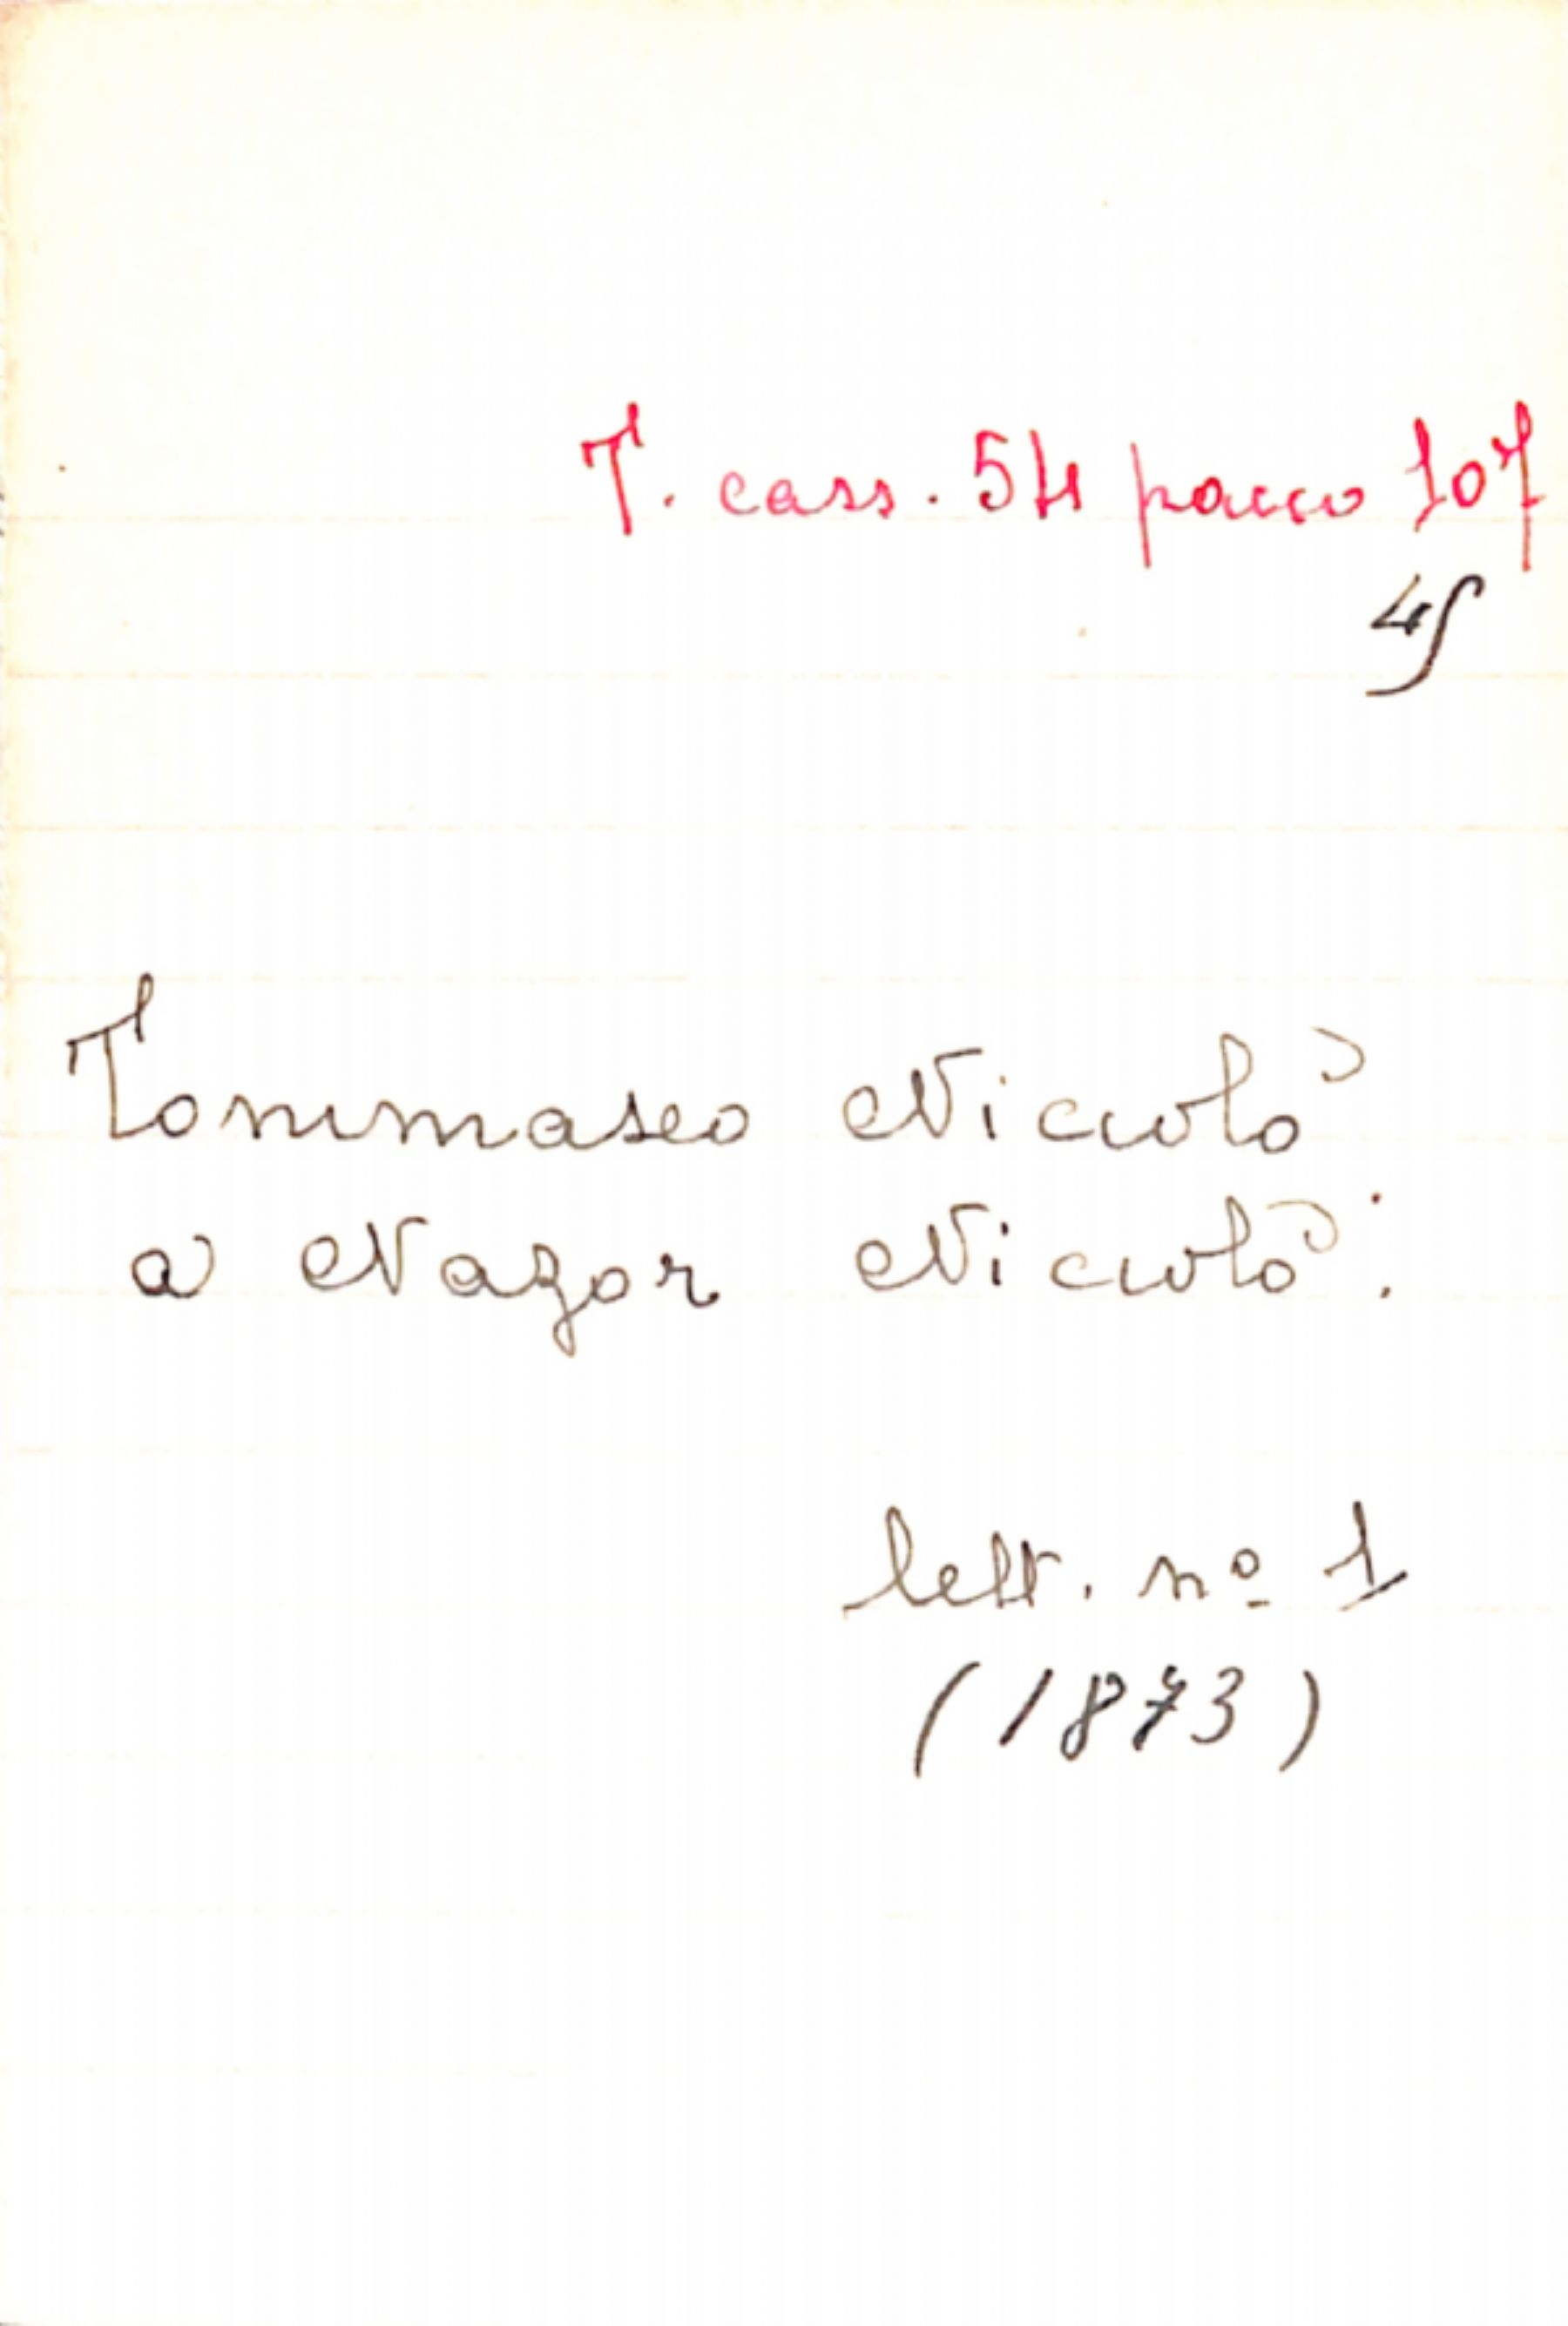 T. cass. 54 pacco 107
45
Tommaseo Niccolò
a Nazor Niccolò:
lett. nº 1
(1873)